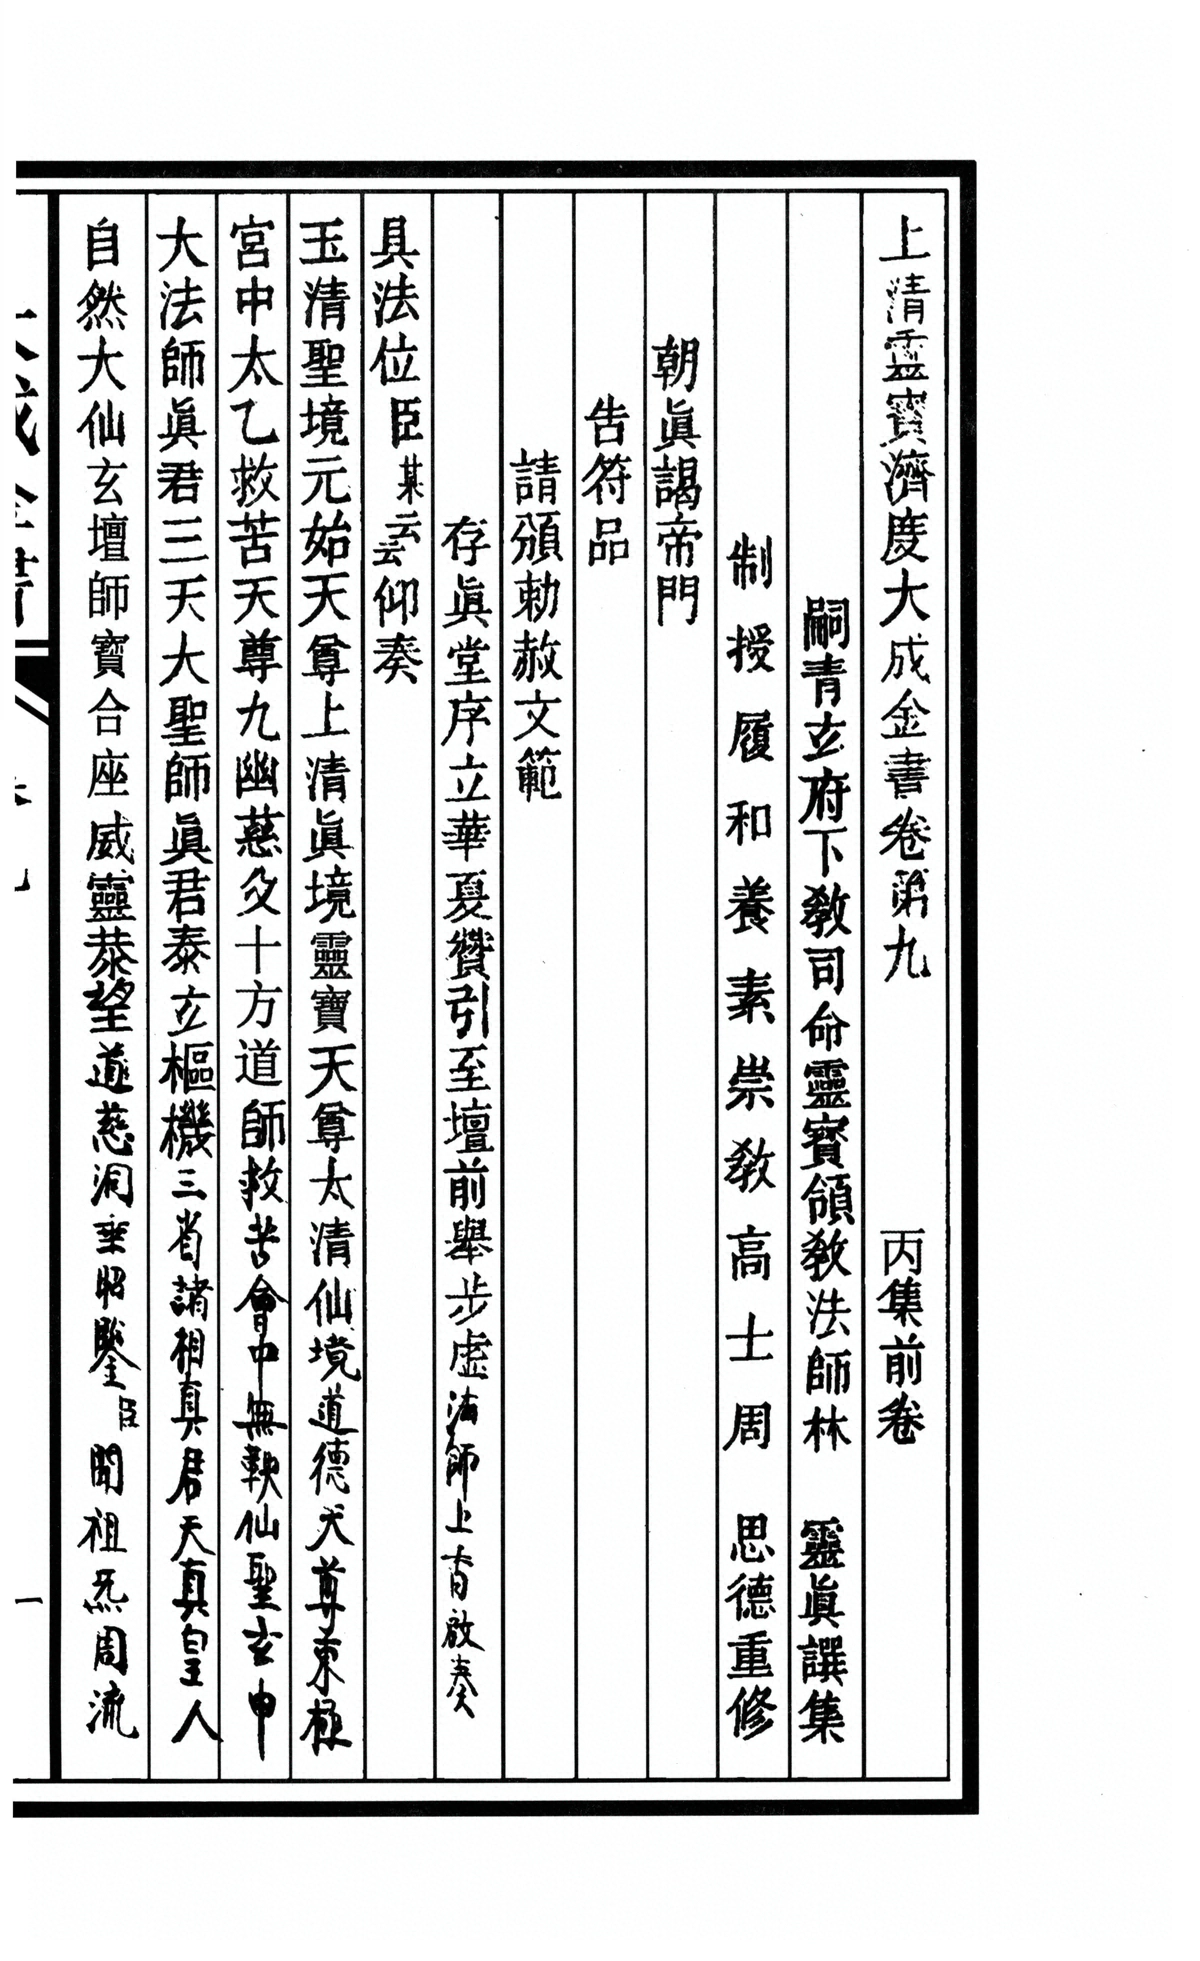 上清靈寶濟度大成金書卷第九　丙集前卷
嗣青玄府下教司命靈寶領教法師林　靈眞譔集
制授履和養素崇教高士周　思德重修
朝眞謁帝門
告符品
請頒勅赦文範
存眞堂序立華夏贊引至壇前舉步虛法師上香啟奏
具法位臣某云云仰奏
玉清聖境元始天尊上清眞境靈寶天尊太清仙境道德天尊東極
宮中太乙救苦天尊九幽慈父十方道師救苦會中無鞅仙聖玄中
大法師眞君三天大聖師眞君泰玄樞機三省諸相真君天真皇人
自然大仙玄壇師寶合座威靈恭望道慈洞垂昭鑒臣聞祖炁周流
一